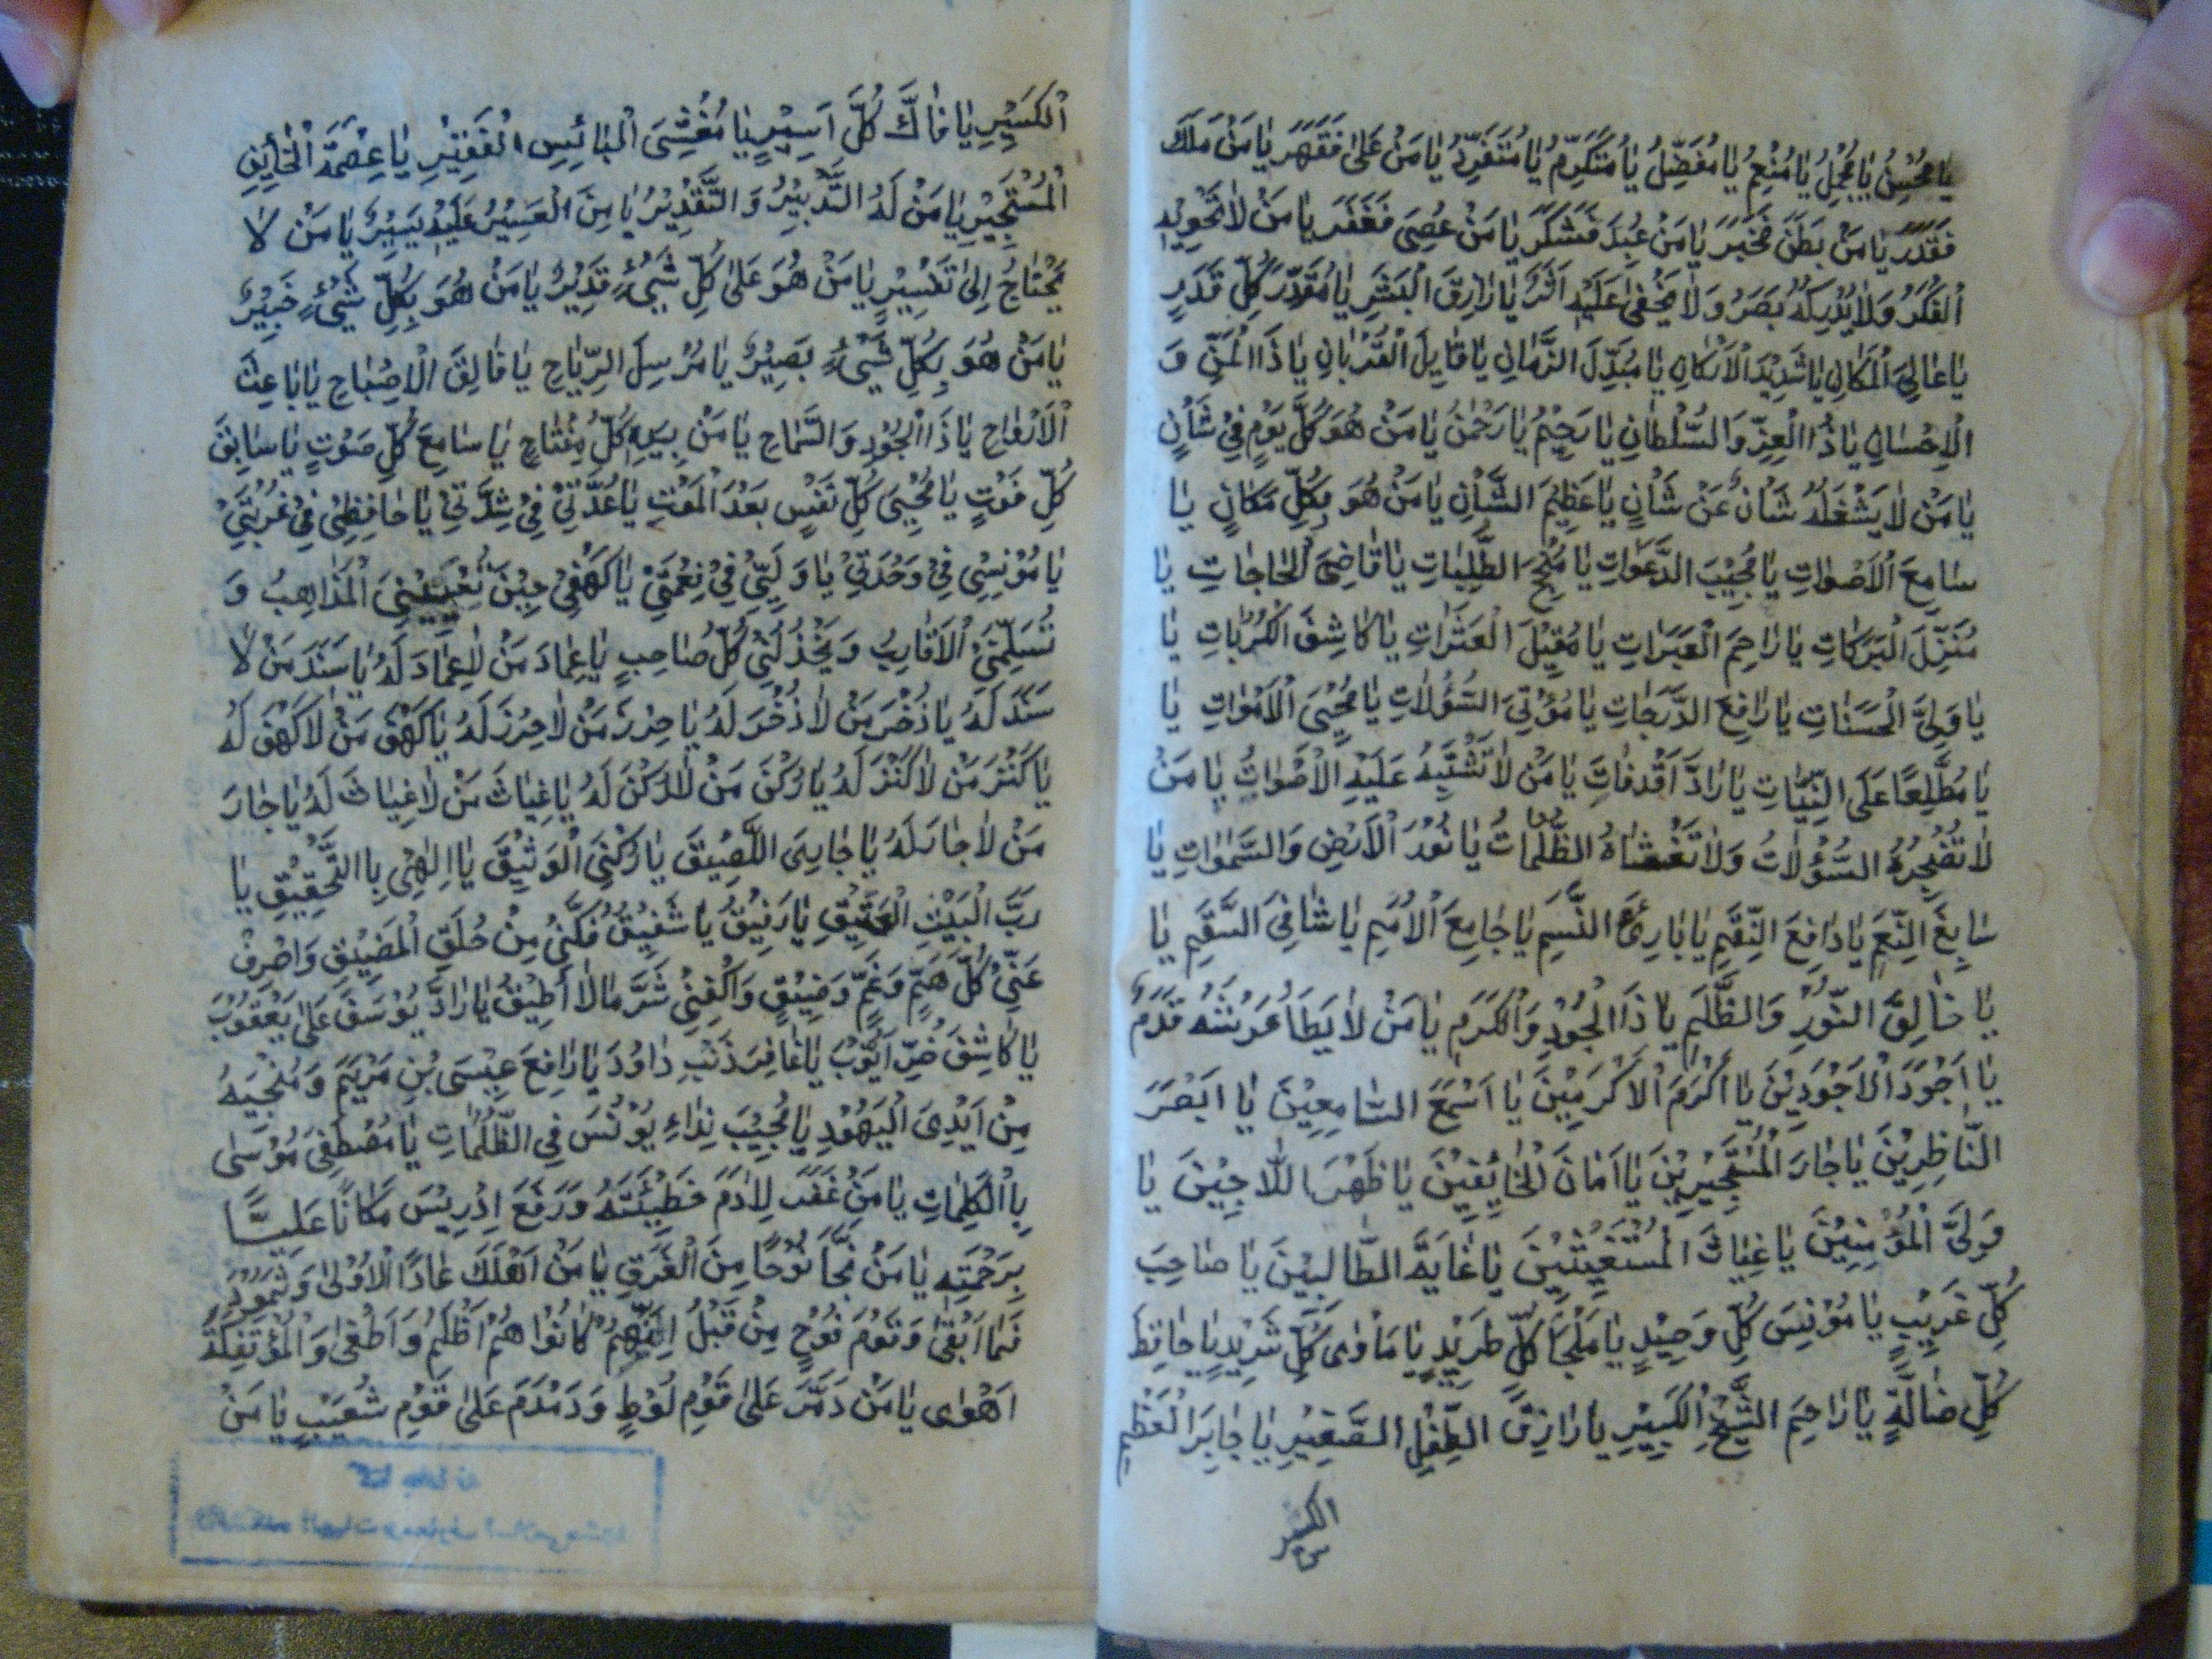 يٰا مُحْسِنُ يٰا مُجْمِلُ يٰا مُنْعِمُ يٰا مُفَضِّلُ يٰا مُتَكَرِّمُ يٰا مُتَفَرِّدُ يٰا مَنْ عَلىٰ فَقَهَرَ يٰا مَنْ مَلَكَ
فَقَدَرَ يٰا مَنْ بَطَنَ فَخَبَرَ يٰا مَنْ عُبِدَ فَشَكَرَ يٰا مَنْ عُصِىَ فَغَفَرَ يٰا مَنْ لاٰ تَحْوِيْهِ
الْفِكَرُ وَلاٰ يُدْرِكُهُ بَصَرُ وَ لاٰ يَخْفىٰ عَلَيْهِ اَثَرُ يٰا رٰازِقَ الْبَشَرِ يٰا مُقَدِّرَ كُلِّ قَدَرٍ
يٰا عٰالِىَ الْمَكٰانِ يٰا شَدِيْدَ الْاَرْكٰانِ يٰا مُبَدِّلَ الزَّمٰانِ يٰا قٰابِلَ الْقُرْبٰانِ يٰا ذَا الْمَنِّ وَ
الْاِحْسٰانِ يٰا ذُا الْعِزِّ وَ السُّلْطٰانِ يٰا رَحِيْمُ يٰا رَحْمٰنُ يٰا مَنْ هُوَ كُلَّ يَوْمٍ فِىْ شَأْنٍ
يٰا مَنْ لاٰ يَشْغَلُهُ شَأْنٌ عَنْ شَأْنٍ يٰا عَظِيْمَ الشَّأْنِ يٰا مَنْ هُوَ بِكُلِّ مَكٰانٍ يٰا
سٰامِعَ الْاَصْوٰاتِ يٰا مُجِيْبَ الدَّعَوٰاتِ يٰا مُنْجِحَ الطَّلِبٰاتِ يٰا قٰاضِىَ الْحٰاجٰاتِ يٰا
مُنَزِّلَ الْبَرَكٰاتِ يٰا رٰاحِمَ الْعَبَرٰاتِ يٰا مُقِيْلَ الْعَثَرٰاتِ يٰا كٰاشِفَ الْكُرُبٰاتِ يٰا
يٰا وَلِىَّ الْحَسَنٰاتِ يٰا رٰافِعَ الدَّرَجٰاتِ يٰا مُؤْتِىَ السُّؤُلاٰتِ يٰا مُحْيِىَ الْاَمْوٰاتِ يٰا
يٰا مُطَّلِعًا عَلَى النِّيّٰاتِ يٰا رٰادَّ مٰا قَدْ فٰاتَ يٰا مَنْ لاٰ تَشْتَبِهُ عَلَيْهِ الْاَصْوٰاتُ يٰا مَنْ
لاٰ تُضْجِرُهُ السُّؤُلاٰتُ وَلاٰ تَغْشٰاهُ الظُّلُمٰاتُ يٰا نُوْرَ الْاَرْضِ وَ السَّمٰوٰاتِ يٰا
سٰابِغَ النِّعَمِ يٰا دٰافِعَ النِّقَمِ يٰا بٰارِئَ النَّسَمِ يٰا جٰامِعَ الْاُمَمِ يٰا شٰافِىَ السَّقَمِ يٰا
يٰا خٰالِقَ النُّوْرِ وَ الظُّلَمِ يٰا ذَا الْجُوْدِ وَ الْكَرَمِ يٰا مَنْ لاٰ يَطَأُ عَرْشَهُ قَدَمٌ
يٰا اَجْوَدَ الْاَجْوَدِيْنَ يٰا أَكْرَمَ الْاَكْرَمِيْنَ يٰا اَسْمَعَ السّٰامِعِيْنَ يٰا اَبْصَرَ
النّٰاظِرِيْنَ يٰا جٰارَ الْمُسْتَجِيْرِيْنَ يٰا اَمٰانَ الْخٰائِفِيْنَ يٰا ظَهْرَ اللّٰاجِيْنَ يٰا
وَلِىَّ الْمُؤْمِنِيْنَ يٰا غِيٰاثَ الْمُسْتَغِيْثِيْنَ يٰا غٰايَةَ الطّٰالِبِيْنَ يٰا صٰاحِبَ
كُلِّ غَرِيْبٍ يٰا مُؤْنِسَ كُلِّ وَحِيْدٍ يٰا مَلْجَأَ كُلِّ طَرِيْدٍ يٰا مَأْوٰى كُلِّ شَرِيْدٍ يٰا حٰافِظَ
كُلِّ ضٰالَّةٍ يٰا رٰاحِمَ الشَّيْخِ الْكَبِيْرِ يٰا رٰازِقَ الطِّفْلِ الصَّغِيْرِ يٰا جٰابِرَ الْعَظْمِ
الكسير
الْكَسِيْرِ يٰا فٰاكَّ كُلِّ اَسِيْرٍ يٰا مُغْنِىَ الْبٰائِسِ الْفَقِيْرِ يٰا عِصْمَةَ الْخٰائِفِ
الْمُسْتَجِيْرِ يٰا مَنْ لَهُ التَّدْبِيْرُ وَ التَّقْدِيْرُ يٰا مَنِ الْعَسِيْرُ عَلَيْهِ يَسِيْرٌ يٰا مَنْ لاٰ
يَحْتٰاجُ اِلىٰ تَفْسِيْرٍ يٰا مَنْ هُوَ عَلىٰ كُلِّ شَىْءٍ قَدِيْرٌ يٰا مَنْ هُوَ بِكُلِّ شَىْءٍ خَبِيْرٌ
يٰا مَنْ هُوَ بِكُلِّ شَىْءٍ بَصِيْرٌ يٰا مُرْسِلَ الرِّيٰاحِ يٰا فٰالِقَ الْاِصْبٰاحِ يٰا بٰاعِثَ
الْاَرْوٰاحِ يٰا ذَا الْجُوْدِ وَ السَّمٰاحِ يٰا مَنْ بِيَدِهِ كُلُّ مِفْتٰاحٍ يٰا سٰامِعَ كُلِّ صَوْتٍ يٰا سٰابِقَ
كُلِّ فَوْتٍ يٰا مُحْيِىَ كُلِّ نَفْسٍ بَعْدَ الْمَوْتِ يٰا عُدَّتِىْ فِىْ شِدَّتِىْ يٰا حٰافِظِىْ فِىْ غُرْبَتِىْ
يٰا مُؤْنِسِىْ فِىْ وَحْدَتِىْ يٰا وَلِيِّىْ فِىْ نِعْمَتِىْ يٰا كَهْفِىْ حِيْنَ تُعْيِيْنِىَ الْمَذٰاهِبُ وَ
تُسَلِّمُنِىْ الْاَقٰارِبُ وَ يَخْذُلُنِىْ كُلُّ صٰاحِبٍ يٰا عِمٰادَ مَنْ لاٰ عِمٰادَ لَهُ يٰا سَنَدَ مَنْ لاٰ
سَنَدَ لَهُ يٰا ذُخْرَ مَنْ لاٰ ذُخْرَ لَهُ يٰا حِرْزَ مَنْ لاٰ حِرْزَ لَهُ يٰا كَهْفَ مَنْ لاٰ كَهْفَ لَهُ
يٰا كَنْزَ مَنْ لاٰ كَنْزَ لَهُ يٰا رُكْنَ مَنْ لاٰ رُكْنَ لَهُ يٰا غِيٰاثَ مَنْ لاٰ غِيٰاثَ لَهُ يٰا جٰارَ
مَنْ لاٰ جٰارَ لَهُ يٰا جٰارِىَ اللَّصِيْقَ يٰا رُكْنِىَ الْوَثِيْقَ يٰا اِلٰهِىْ بِاالتَّحْقِيْقِ يٰا
رَبَّ الْبَيْتِ الْعَتِيْقِ يٰا رَفِيْقُ يٰا شَفِيْقُ فُكَّنِىْ مِنْ حَلَقِ الْمَضِيْقِ وَ اصْرِفْ
عَنِّىْ كُلَّ هَمٍّ وَ غَمٍّ وَ ضِيْقٍ وَ اكْفِنِىْ شَرَّ مٰا لاٰ أُطِيْقُ يٰا رٰادَّ يُوْسُفَ عَلىٰ يَعْقُوْبَ
يٰا كٰاشِفَ ضُرِّ اَيُّوْبَ يٰا غٰافِرَ ذَنْبِ دٰاوُدَ يٰا رٰافِعَ عِيْسَى بْنِ مَرْيَمَ وَ مُنْجِيَهُ
مِنْ اَيْدِىَ الْيَهُوْدِ يٰا مُجِيْبَ نِدٰاءِ يُوْنُسَ فِى الظُّلُمٰاتِ يٰا مُصْطَفِىَ مُوْسٰى
بِاالْكَلِمٰاتِ يٰا مَنْ غَفَرَ لِاٰدَمَ خَطِيْئَتَهُ وَ رَفَعَ اِدْرِيْسَ مَكٰانًا عَلِيًّا
بِرَحْمَتِهِ يٰا مَنْ نَجّٰا نُوْحًا مِنَ الْغَرَقِ يٰا مَنْ اَهْلَكَ عٰادًا الْاُوْلىٰ وَ ثَمُوْدَ
فَمٰا اَبْقىٰ وَ قَوْمَ نُوْحٍ مِنْ قَبْلُ اِنَّهُمْ كٰانُوْا هُمْ اَظْلَمَ وَ اَطْغىٰ وَ الْمُؤْتَفِكَةَ
اَهْوٰى يٰا مَنْ دَمَّرَ عَلىٰ قَوْمِ لُوْطٍ وَ دَمْدَمَ عَلىٰ قَوْمِ شُعَيْبٍ يٰا مَنْ